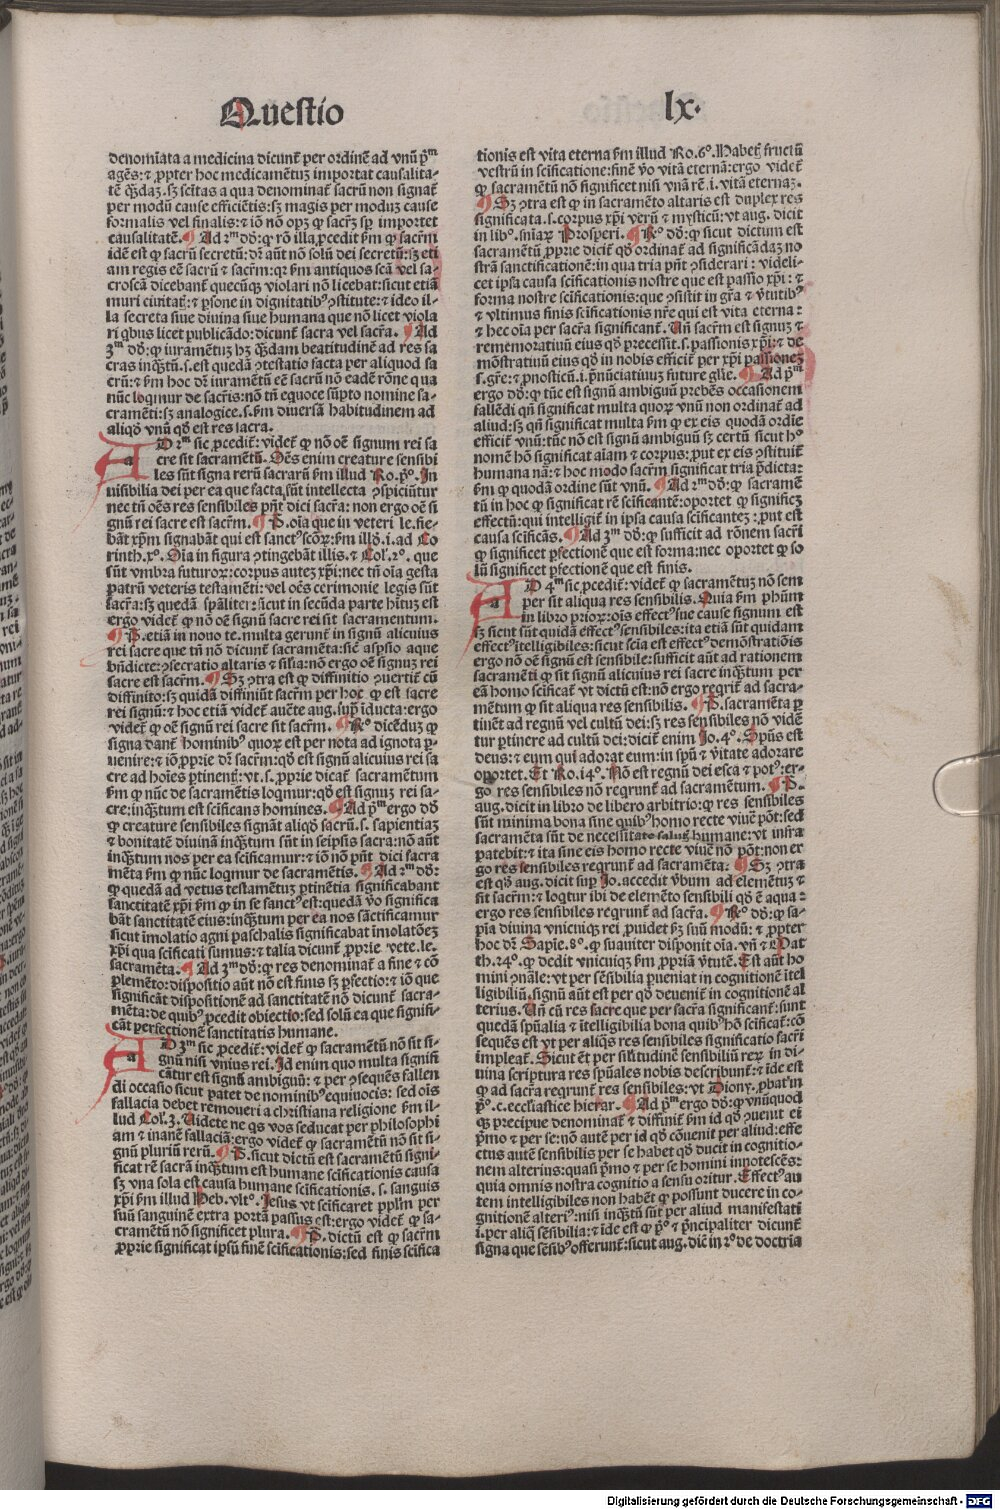 Questio lx.
denomīata a medicina dicunt᷑ per ordinē ad vnū pͫ
agēs: ⁊ ꝓpter hoc medicamētuꝫ importat causalita-
tē q̄ꝺaꝫ. sꝫ scītas a qua denominat᷑ sacrū non signat᷑
per modū cause efficiētis: sꝫ magis per moduꝫ cause
formalis vel finalis: ⁊ iō nō opꝫ ꝙ sacr̄ꝫ sꝑ importet
causalitatē. Ad 2ᵐ dō: ꝙ rō illa ꝓcedit ẜm ꝙ sacr̄m
idē est ꝙ sacrū secretū: dr̄ aūt nō solū dei secretū: sꝫ eti
am regis eē sacrū ⁊ sacr̄m: qꝛ ẜm antiquos scā vel sa-
croscā dicebant᷑ quecūqꝫ violari nō licebat: sicut etiā
muri ciuitat᷑: ⁊ ꝑsone in dignitatibꝰ ꝯstitute: ⁊ ideo il-
la secreta siue diuina siue humana que nō licet viola
ri qbus licet publicādo: dicunt᷑ sacra vel sacr̄a. Ad
3ᵐ dō: ꝙ iuramētuꝫ hꝫ q̄ꝺam beatitudinē ad res sa
cras inq̄tū. s. est quedā ꝯtestatio facta per aliquod sa
crū: ⁊ ẜm hoc dr̄ iuramētū eē sacrū nō eadē rōne qua
nūc loqmur de sacr̄is: nō tn̄ equoce sūpto nomine sa-
cramēti: sꝫ analogice. s. ẜm diuersā habitudinem ad
aliqd vnū qd est res sacra.
AD 2ᵐ sic ꝓcedit᷑: videt᷑ ꝙ nō oē signum rei sa
cre sit sacramētū. Oēs enim creature sensibi
les sūt signa rerū sacrarū ẜm illud Ro. pº. In
uisibilia dei per ea que facta sūt intellecta ꝯspiciūtur
nec tn̄ oēs res sensibiles pn̄t dici sacra: non ergo oē si
gnū rei sacre est sacr̄m. P. oīa que in veteri le. fie-
bāt xp̄m signabāt qui est sanctꝰ scōꝝ: ẜm illd̄. i. ad Co
rinth. xº. Oīa in figura ꝯtingebāt illis. ⁊ Col. 2º. que
sūt vmbra futuroꝝ: corpus auteꝫ xp̄i: nec tn̄ oīa gesta
patrū veteris testamēti: vel oēs cerimonie legis sūt
sacr̄a: sꝫ quedā sp̄aliter: sicut in secūda parte hituꝫ est
ergo videt᷑ ꝙ nō oē signū sacre rei sit sacramentum.
P. etiā in nouo te. multa gerunt᷑ in signū alicuius
rei sacre que tn̄ nō dicunt᷑ sacramēta: sicē aspsio aque
bn̄dicte: ꝯsecratio altaris ⁊ silia: nō ergo oē signuꝫ rei
sacre est sacr̄m. Sꝫ ꝯtra est ꝙ diffinitio ꝯuertit᷑ cū
diffinito: sꝫ quidā diffiniūt sacr̄m per hoc ꝙ est sacre
rei signū: ⁊ hoc etiā videt᷑ auēte aug. supͣ iducta: ergo
videt᷑ ꝙ oē signū rei sacre sit sacr̄m. R̄º dicēduꝫ ꝙ
signa dant᷑ hominibꝰ quoꝝ est per nota ad ignota ꝑ-
uenire: ⁊ iō ꝓprie dr̄ sacr̄m: qd est signū alicuius rei sa
cre ad hoīes ꝑtinent᷑: vt. s. ꝓprie dicat᷑ sacramētum
ẜm ꝙ nūc de sacramētis loqmur: qd est signuꝫ rei sa-
cre: inq̄tum est scificans homines. Ad pͫ ergo dō
ꝙ creature sensibiles signāt aliqd sacrū. s. sapientiaꝫ
⁊ bonitatē diuinā inq̄tum sūt in seipsis sacra: nō aūt
inq̄tum nos per ea scificamur: ⁊ iō nō pn̄t dici sacra
mēta ẜm ꝙ nūc loqmur de sacramētis. Ad 2ᵐ dō:
ꝙ quedā ad vetus testamētuꝫ ꝑtinētia significabant
sanctitatē xp̄i ẜm ꝙ in se sanctꝰ est: quedā ꝟo significa
bāt sanctitatē eius: inq̄tum per ea nos sāctificamur
sicut imolatio agni paschalis significabat imolatōeꝫ
xp̄i qua scificati sumus: ⁊ talia dicunt᷑ ꝓprie vete. le.
sacramēta. Ad 3ᵐ dō: ꝙ res denominat᷑ a fine ⁊ cō
plemēto: dispositio aūt nō est finis sꝫ ꝑfectio: ⁊ iō que
significāt dispositionē ad sanctitatē nō dicunt᷑ sacra-
mēta: de quibꝰ ꝓcedit obiectio: sed solū ea que signifi-
cāt perfectionē sanctitatis humane.
AD 3ᵐ sic ꝓcedit᷑: videt᷑ ꝙ sacramētū nō sit si-
gnū nisi vnius rei. Id enim quo multa signifi
cātur est signū ambiguū: ⁊ per ꝯsequēs fallen
di occasio sicut patet de nominibꝰ equiuocis: sed oīs
fallacia debet remoueri a christiana religione ẜm il-
lud Col. 3. Uidete ne qs vos seducat per philosophi
am ⁊ inanē fallaciā: ergo videt᷑ ꝙ sacramētū nō sit si-
gnū pluriū rerū. P. sicut dictū est sacramētū signi-
ficat rē sacrā inq̄tum est humane scificationis causa
sꝫ vna sola est causa humane scificationis. s. sanguis
xp̄i ẜm illud Heb. vltº. Jesus vt scificaret pplm̄ per
suū sanguinē extra portā passus est: ergo videt᷑ ꝙ sa-
cramētū nō significet plura. P. dictū est ꝙ sacr̄m
ꝓprie significat ipsū finē scificationis: sed finis scifica
tionis est vita eterna ẜm illud Ro. 6º. Habet᷑ fructū
vestrū in scificatione: finē ꝟo vitā eternā: ergo videt᷑
ꝙ sacramētū nō significet nisi vnā rē. i. vitā eternaꝫ.
Sꝫ ꝯtra est ꝙ in sacramēto altaris est duplex res
significata. s. corpus xp̄i verū ⁊ mysticū: vt aug. dicit
in libº. sniaꝝ Prosperi. R̄º dō: ꝙ sicut dictum est
sacramētū ꝓprie dicit᷑ qd ordinat᷑ ad significādaꝫ no
strā sanctificationē: in qua tria pn̄t ꝯsiderari: videli-
cet ipsa causa scificationis nostre que est passio xp̄i: ⁊
forma nostre scificationis: que ꝯsistit in gr̄a ⁊ ꝟtutibꝰ
⁊ vltimus finis scificationis nr̄e qui est vita eterna:
⁊ hec oīa per sacr̄a significant᷑. Un̄ sacr̄m est signuꝫ ⁊
rememoratiuū eius qd precessit. s. passionis xp̄i: ⁊ de
mōstratiuū eius qd in nobis efficit᷑ per xp̄i passioneꝫ
s. gr̄e: ⁊ ꝓnosticū. i. p̄nūciatiuuꝫ future gl̄ie. Ad pͫ
ergo dō: ꝙ tūc est signū ambiguū prebēs occasionem
fallēdi qn̄ significat multa quoꝝ vnū non ordinat᷑ ad
aliud: sꝫ qn̄ significat multa ẜm ꝙ ex eis quodā ordīe
efficit᷑ vnū: tūc nō est signū ambiguū sꝫ certū sicut hº
nomē hō significat aīam ⁊ corpus: put ex eis ꝯstituit᷑
humana nā: ⁊ hoc modo sacr̄m significat tria p̄dicta:
ẜm ꝙ quodā ordine sūt vnū. Ad 2ᵐ dō: ꝙ sacramē
tū in hoc ꝙ significat rē scificantē: oportet ꝙ significeꝫ
effectū: qui intelligit᷑ in ipsa causa scificanteꝫ: put est
causa scificās. Ad 3ᵐ dō: ꝙ sufficit ad rōnem sacr̄i
ꝙ significet ꝑfectionē que est forma: nec oportet ꝙ so
lū significet ꝑfectionē que est finis.
AD 4ᵐ sic ꝓcedit᷑: videt᷑ ꝙ sacramētuꝫ nō sem
per sit aliqua res sensibilis. Quia ẜm phūm
in libro prioꝝ: oīs effectꝰ sue cause signum est
sꝫ sicut sūt quidā effectꝰ sensibiles: ita etiā sūt quidam
effectꝰ itelligibiles: sicut scia est effectꝰ demōstratiōis
ergo nō oē signū est sensibile: sufficit aūt ad rationem
sacramēti ꝙ sit signū alicuius rei sacre inq̄tum per
eā homo scificat᷑ vt dictū est: nō ergo reqrit᷑ ad sacra-
mētum ꝙ sit aliqua res sensibilis. P. sacramēta ꝑ
tinēt ad regnū vel cultū dei: sꝫ res sensibiles nō vidē
tur ꝑtinere ad cultū dei: dicit᷑ enim Jo. 4º. Spūs est
deus: ⁊ eum qui adorat eum: in spū ⁊ ꝟitate adorare
oportet. Et Ro. i4º. Nō est regnū dei esca ⁊ potꝰ: er-
go res sensibiles nō reqrunt᷑ ad sacramentum. P.
aug. dicit in libro de libero arbitrio: ꝙ res sensibiles
sūt minima bona sine quibꝰ homo recte viuē pōt: sed
sacramēta sūt de necessitate salut᷑ humane: vt infra
patebit: ⁊ ita sine eis homo recte viuē nō pōt: non er
go res sensibiles reqrunt᷑ ad sacramēta. Sꝫ ꝯtra
est qd aug. dicit sup Jo. accedit ꝟbum ad elemētuꝫ ⁊
sit sacr̄m: ⁊ loqtur ibi de elemēto sensibili qd ē aqua:
ergo res sensibiles reqrunt᷑ ad sacr̄a. R̄º dō: ꝙ sa-
pīa diuina vnicuiqꝫ rei ꝓuidet ẜm suū modū: ⁊ ꝓpter
hoc dr̄ Sapie. 8º. ꝙ suauiter disponit oīa. vn̄ ⁊ Mat
th. 24º. ꝙ dedit vnicuiqꝫ ẜm ꝓpriā ꝟtutē. Est aūt ho
mini ꝯnāle: vt per sēsibilia ꝑueniat in cognitionē itel
ligibiliū. signū aūt est per qd deuenit᷑ in cognitionē al
terius. Un̄ cū res sacre que per sacr̄a significant᷑: sint
quedā spūalia ⁊ itelligibilia bona quibꝰ hō scificat᷑: cō
sequēs est vt per aliqs res sensibiles significatio sacr̄i
impleat᷑. Sicut ēt per silitudinē sensibiliū reꝝ in di-
uina scriptura res spūales nobis describunt᷑: ⁊ idē est
ꝙ ad sacr̄a reqrunt᷑ res sensibiles: vt Diony. ꝓbat in
pº. c. ecclīastice hierar. Ad pͫ ergo dō: ꝙ vnūquod
qꝫ precipue denominat᷑ ⁊ diffinit᷑ ẜm id qd ꝯuenit ei
p̄mo ⁊ per se: nō autē per id qd cōuenit per aliud: effe
ctus autē sensibilis per se habet qd ducit in cognitio-
nem alterius: quasi p̄mo ⁊ per se homini innotescēs:
quia omnis nostra cognitio a sensu oritur. Effectꝰ au
tem intelligibiles non habēt ꝙ possunt ducere in co-
gnitionē alteriꝰ: nisi inq̄tū sūt per aliud manifestati
i. per aliq̄ sēsibilia: ⁊ idē est ꝙ pº ⁊ p̄ncipaliter dicunt᷑
signa que sēsibꝰ offerunt᷑: sicut aug. dic̄ in 2º de doctria
Digitalisierung gefördert durch die Deutsche Forschungsgemeinschaft - DFG